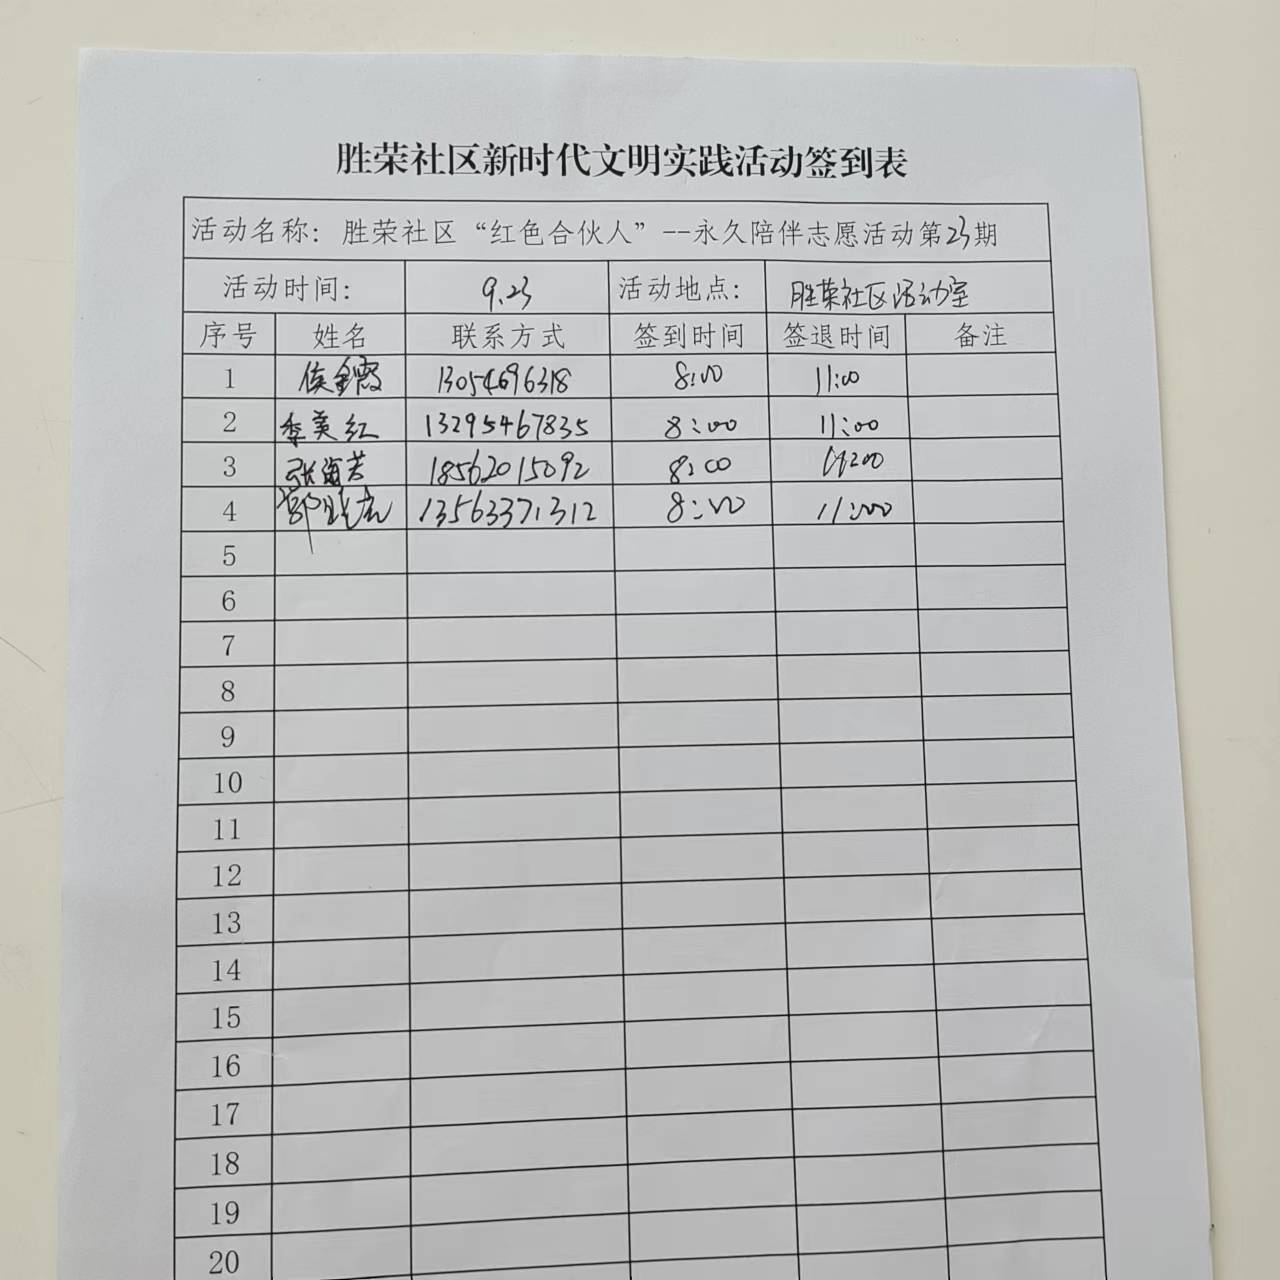 胜荣社区新时代文明实践活动签到表
活动名称：胜荣社区“红色合伙人”--永久陪伴志愿活动第23期
活动时间： 9.23 活动地点： 胜荣社区活动室
序号 姓名 联系方式 签到时间 签退时间 备注
1 侯金霞 13054696318 8:00 11:00
2 季美红 13295467835 8:00 11:00
3 张海芳 18562015092 8:00 11:00
4 郭 13563371312 8:00 11:00
5
6
7
8
9
10
11
12
13
14
15
16
17
18
19
20